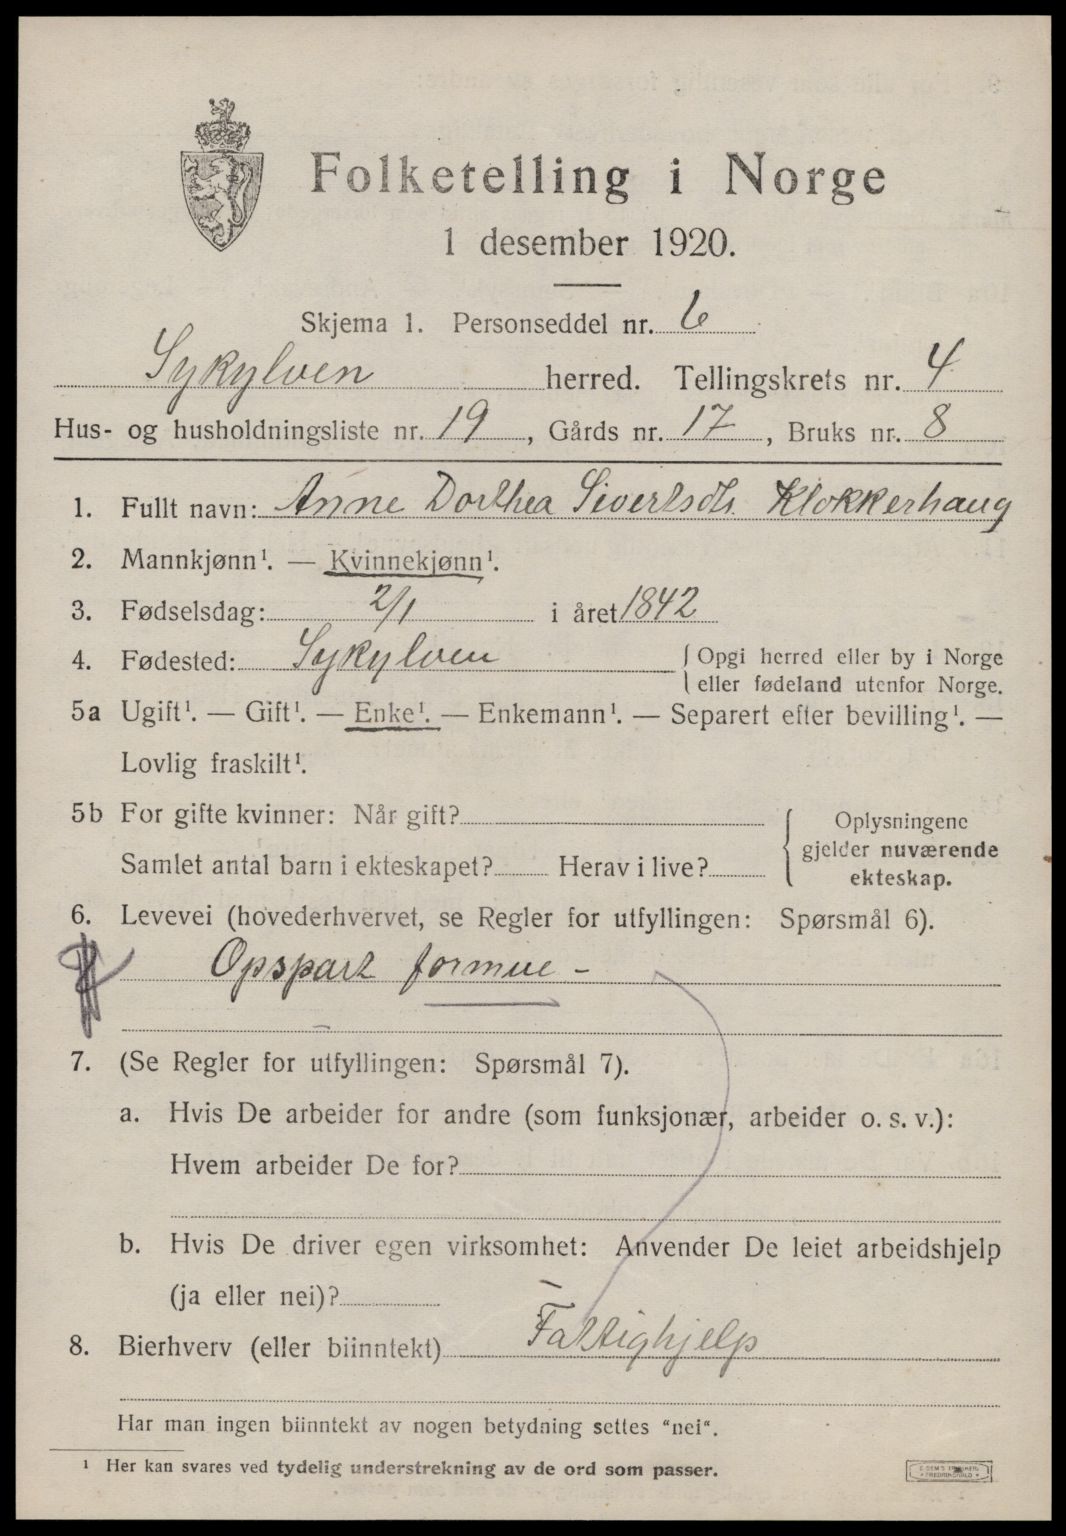 Folketelling i Norge
1 desember 1920.
Skjema 1. Personseddel nr. 6
Sykylven herred. Tellingskrets nr. 4
Hus- og husholdningsliste nr. 19, Gårds nr. 17, Bruks nr. 8
1. Fullt navn: Anne Dorthea Sivertsdt. Klokkerhaug
2. Mannkjønn¹. — Kvinnekjønn¹.
3. Fødselsdag: 2/1 i året 1842
4. Fødested: Sykylven { Opgi herred eller by i Norge
eller fødeland utenfor Norge.
5a Ugift¹. — Gift¹. — Enke¹. — Enkemann¹. — Separert efter bevilling¹. —
Lovlig fraskilt¹.
5b For gifte kvinner: Når gift?
Samlet antal barn i ekteskapet? Herav i live?
Oplysningene
gjelder nuværende
ekteskap.
6. Levevei (hovederhvervet, se Regler for utfyllingen: Spørsmål 6).
Opspart formue -
7. (Se Regler for utfyllingen: Spørsmål 7).
a. Hvis De arbeider for andre (som funksjonær, arbeider o. s. v.):
Hvem arbeider De for?
b. Hvis De driver egen virksomhet: Anvender De leiet arbeidshjelp
(ja eller nei)? —
8. Bierhverv (eller biinntekt) Fattighjelp
Har man ingen biinntekt av nogen betydning settes “nei“.
¹ Her kan svares ved tydelig understrekning av de ord som passer.